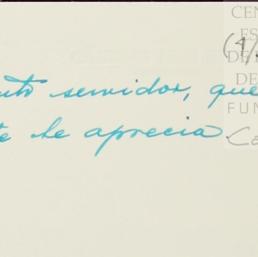 CEN
ES
DE
DE
FUN
(4/
servidor, que
te aprecia.
Ca